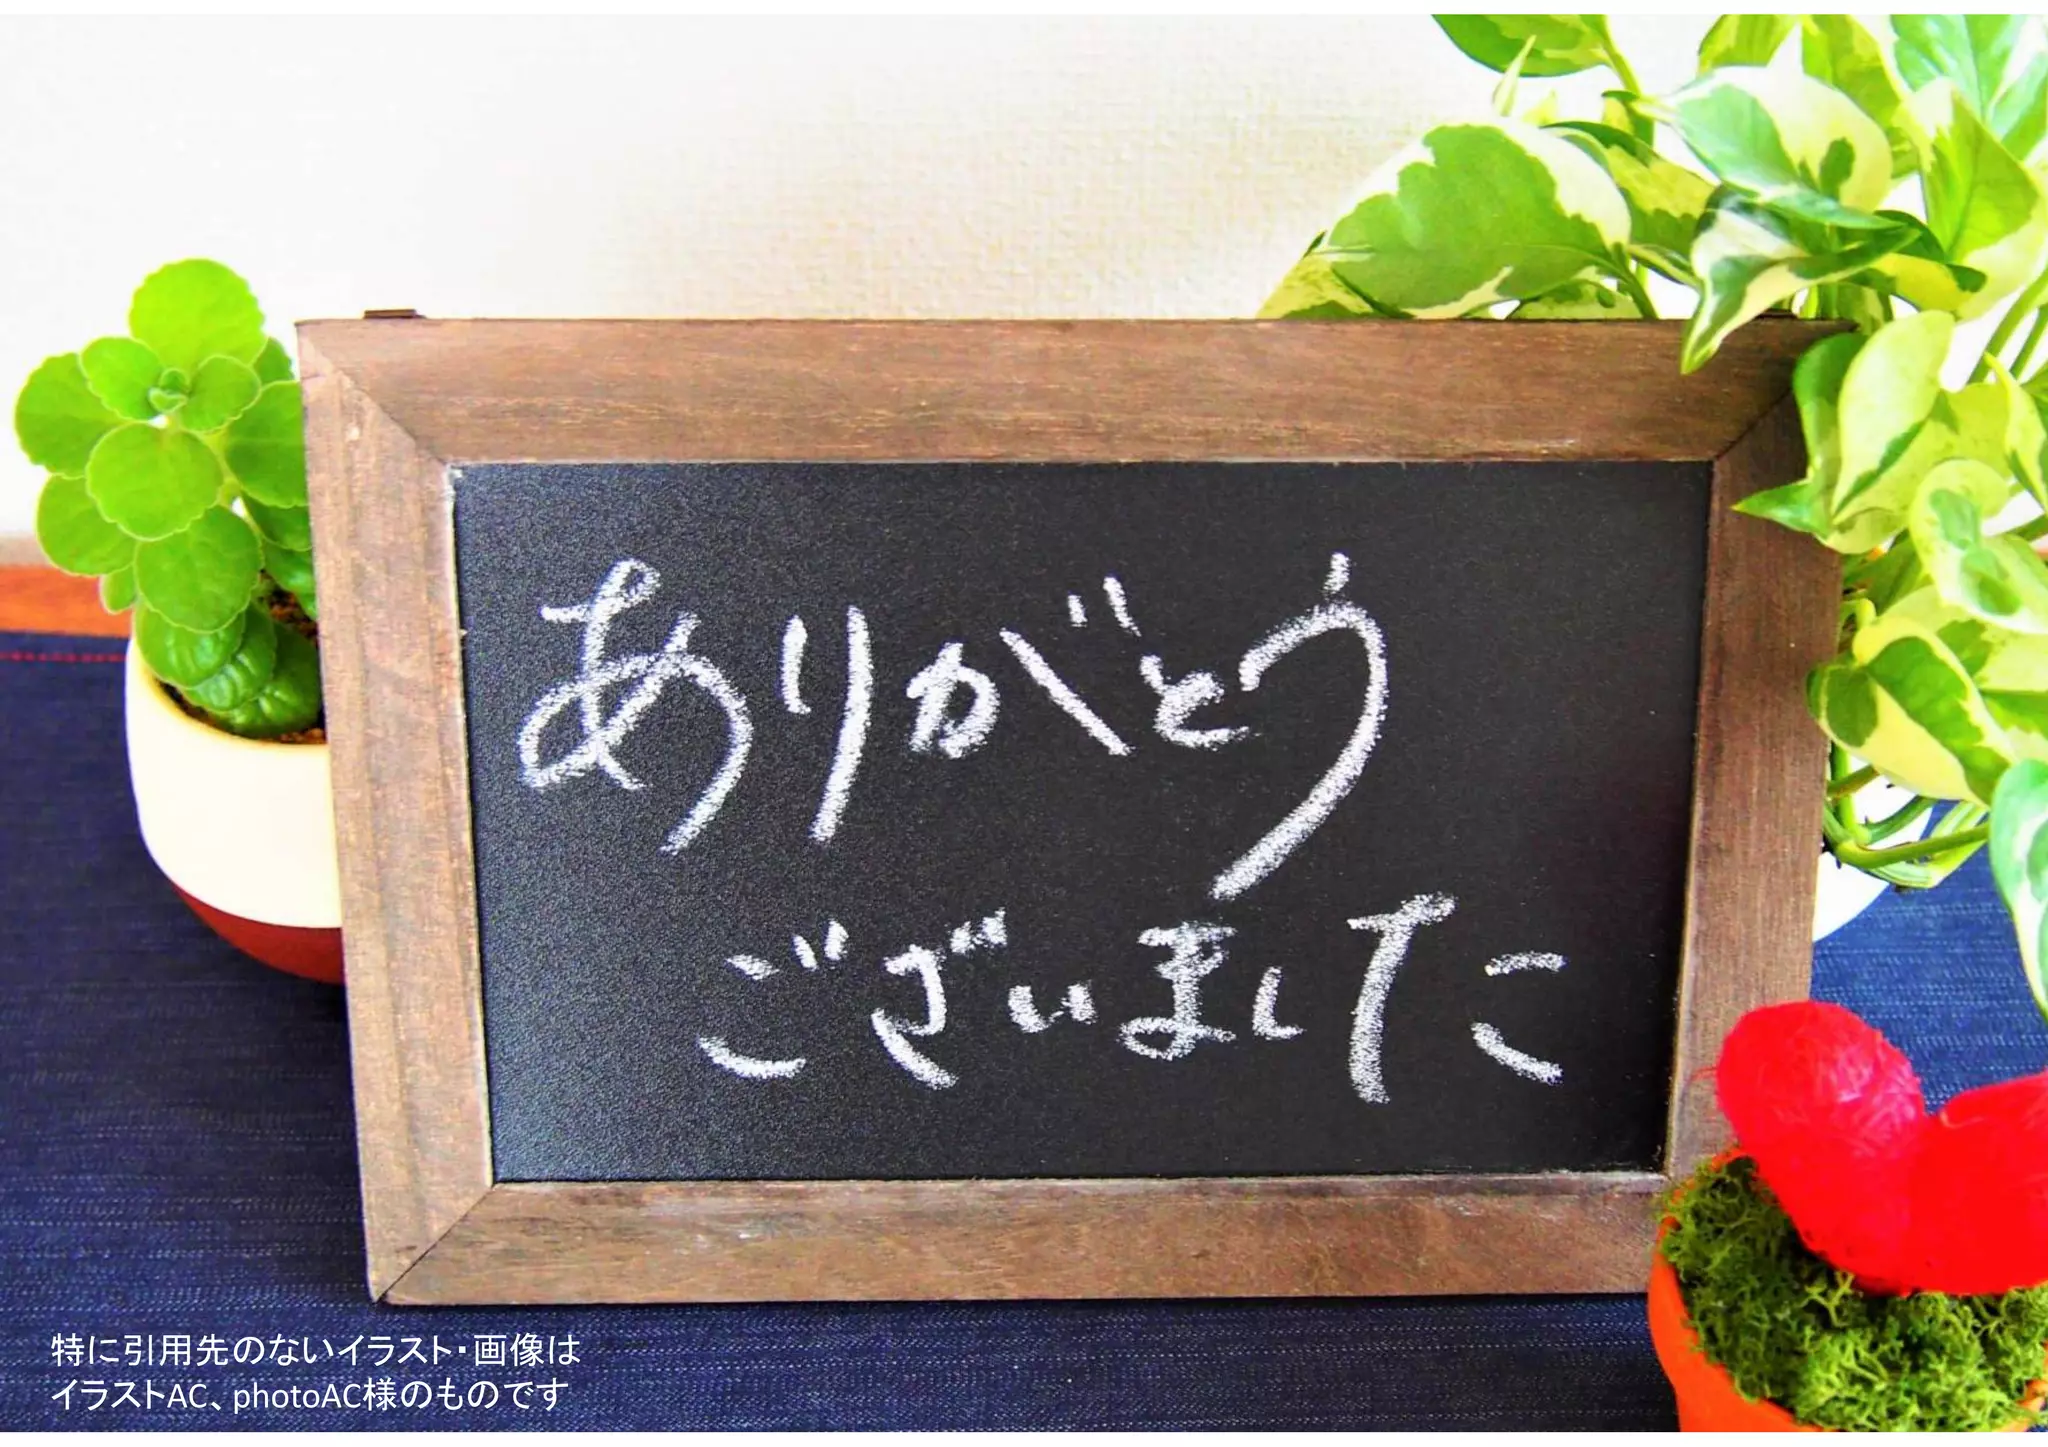 ありがとう
ございました
特に引用先のないイラスト・画像は
イラストAC、photoAC様のものです